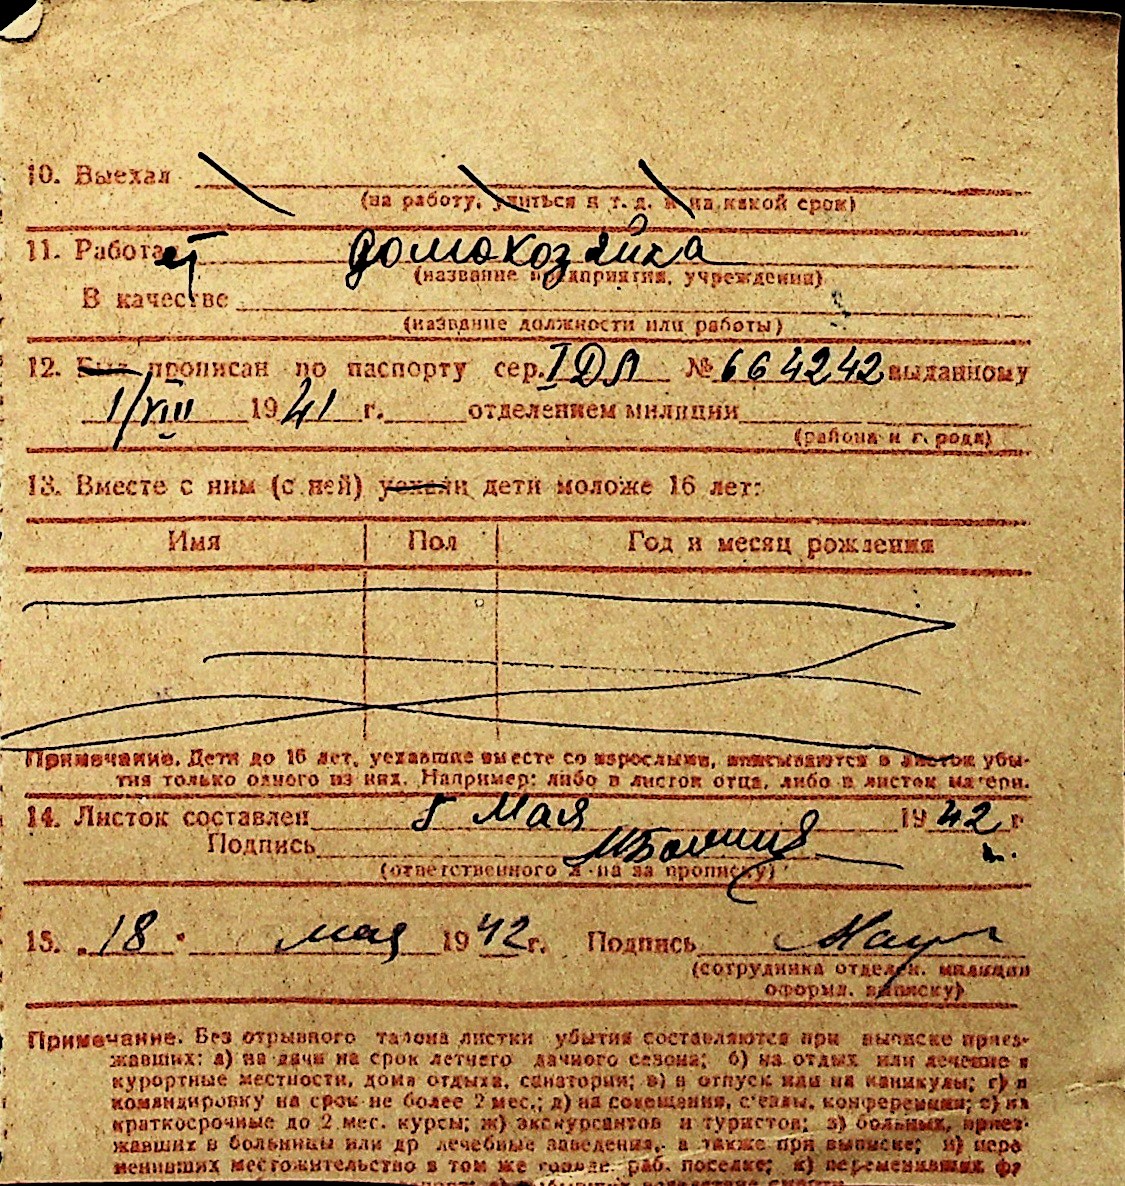 10. Выехал
(на работу, учиться и т. д. и на какой срок)
11. Работает домохозяйка
(название предприятия, учреждения)
В качестве
(название должности или работы)
12. Был прописан по паспорту сер. I № 664242 выданному
1/VIII 1941 г. отделением милиции
(района и г. рода)
13. Вместе с ним (с ней) уехали дети моложе 16 лет:
Имя Пол Год и месяц рождения
Примечание. Дети до 16 лет, уехавшие вместе со взрослыми, вписываются в листок убы-
тия только одного из них. Например: либо в листок отца, либо в листок матери.
14. Листок составлен 5 Мая 1942 г
Подпись
(ответственного за прописку)
15. „18" мая 1942 г. Подпись
(сотрудника отделен. милиции
оформл. выписку)
Примечание. Без отрывного талона листки убытия составляются при выписке приез-
жавших: а) на дачи на срок летнего дачного сезона; б) на отдых или лечение в
курортные местности, дома отдыха, санатории; в) в отпуск или на каникулы; г) в
командировку на срок не более 2 мес.; д) на совещания, с'езды, конференции; е) на
краткосрочные до 2 мес. курсы; ж) экскурсантов и туристов; з) больных, приез-
жавших в больницы или др лечебные заведения, а также при выписке; и) пере
менивших местожительство в том же городе, раб. поселке; к) переменивших